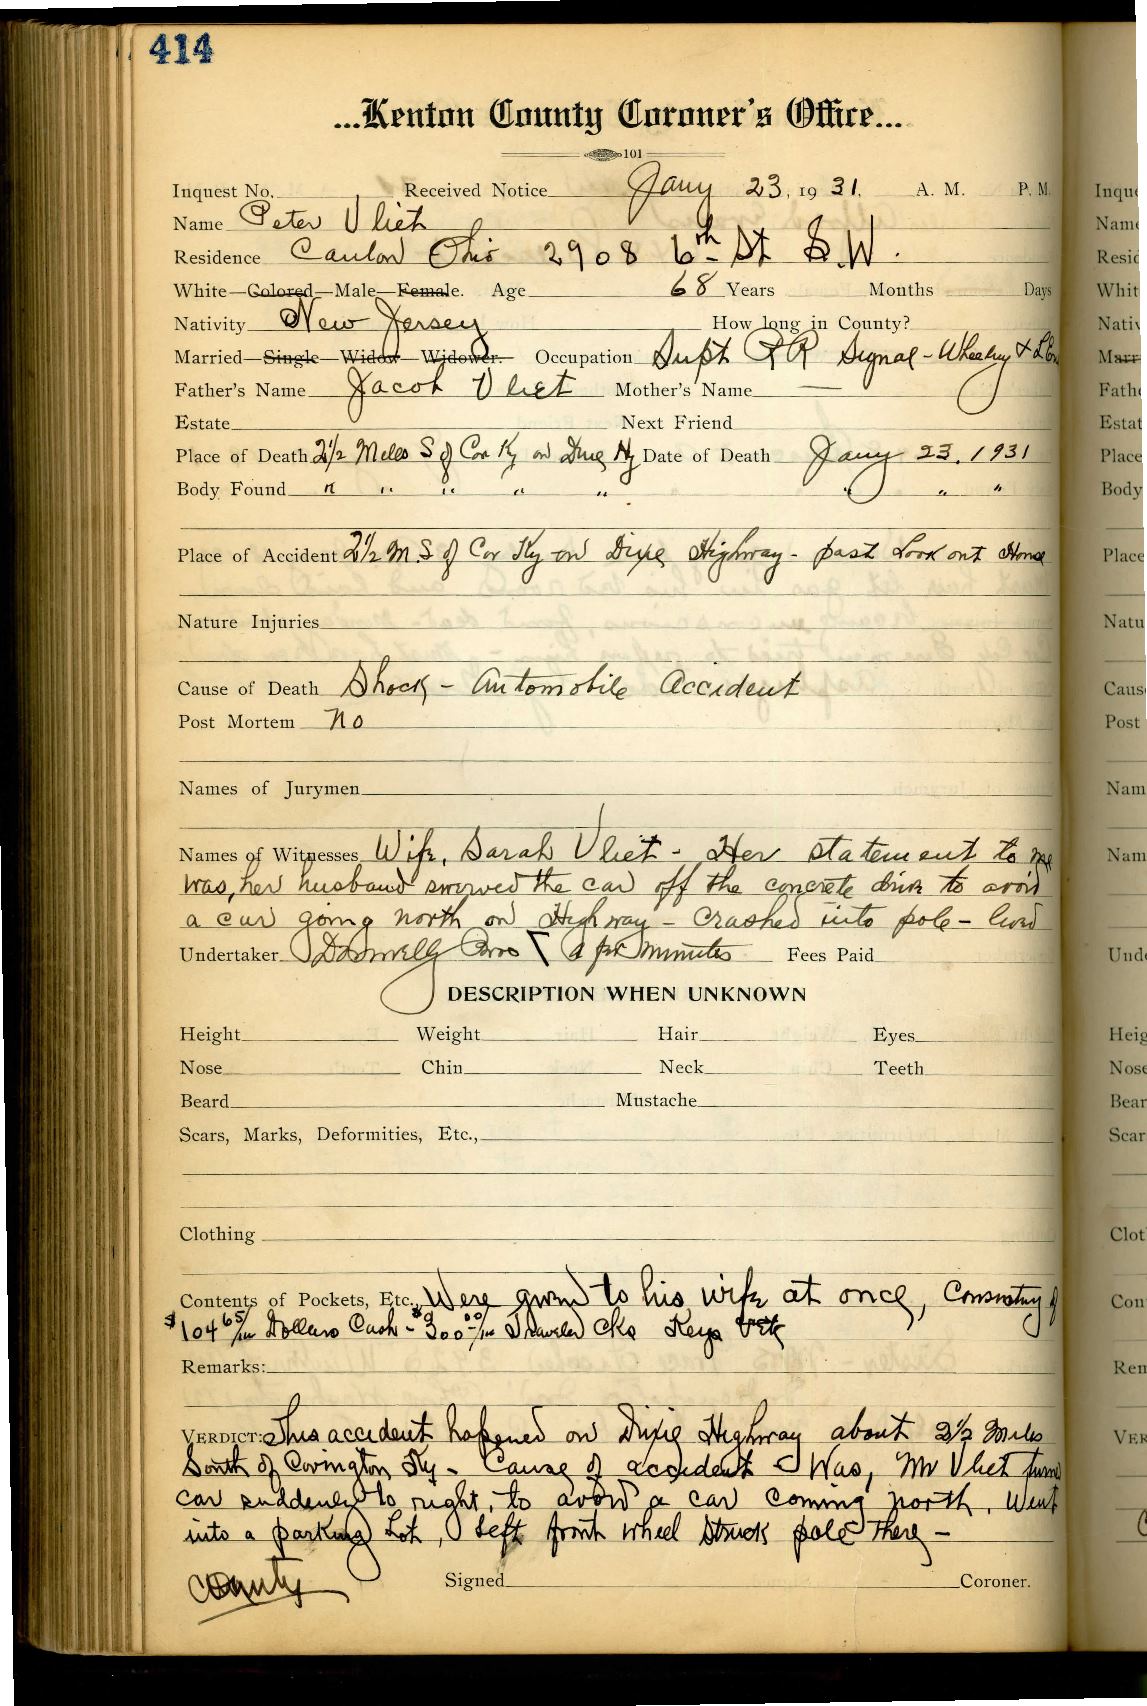 414
...Kenton County Coroner's Office...
101
Inquest No. Received Notice Jany 23, 19 31. A. M. P. M.
Name Peter Vliet
Residence Canton Ohio 2908 6th St S.W.
White—Colored—Male—Female. Age 68 Years Months Days
Nativity New Jersey How long in County?
Married—Single—Widow—Widower. Occupation Supt RR Signal - Wheeling & L E
Father's Name Jacob Vliet Mother's Name —
Estate Next Friend
Place of Death 2½ Miles S of Cov Ky on Dixie Hy Date of Death Jany 23, 1931
Body Found " " " " " " " "
Place of Accident 2½ M. S. of Cov Ky on Dixie Highway - past Look out House
Nature Injuries
Cause of Death Shock - Automobile Accident
Post Mortem no
Names of Jurymen
Names of Witnesses Wife, Sarah Vliet - Her statement to me
was, her husband swerved the car off the concrete drive to avoid
a car going north on Highway - crashed into pole - lived
Undertaker Donnelly Bros a few minutes Fees Paid
DESCRIPTION WHEN UNKNOWN
Height Weight Hair Eyes
Nose Chin Neck Teeth
Beard Mustache
Scars, Marks, Deformities, Etc.,
Clothing
Contents of Pockets, Etc., Were given to his wife at once, Consisting of
$104 65/100 Dollars Cash - $300 00/100 Traveler cks Keys
Remarks:
VERDICT: This accident happened on Dixie Highway about 2½ Miles
South of Covington Ky - Cause of accident Was, Mr Vliet turned
car suddenly to right, to avoid a car coming north. Went
into a parking Lot, left front wheel struck pole there -
County Signed Coroner.
Inque
Name
Resid
Whit
Nativ
Marr
Fathe
Estat
Place
Body
Place
Natu
Cause
Post
Nam
Nam
Unde
Heig
Nose
Bear
Scar
Clot
Con
Ren
VER